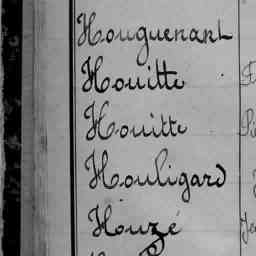 Houguenant
Houitte
Houitte
Houligard
Houzé